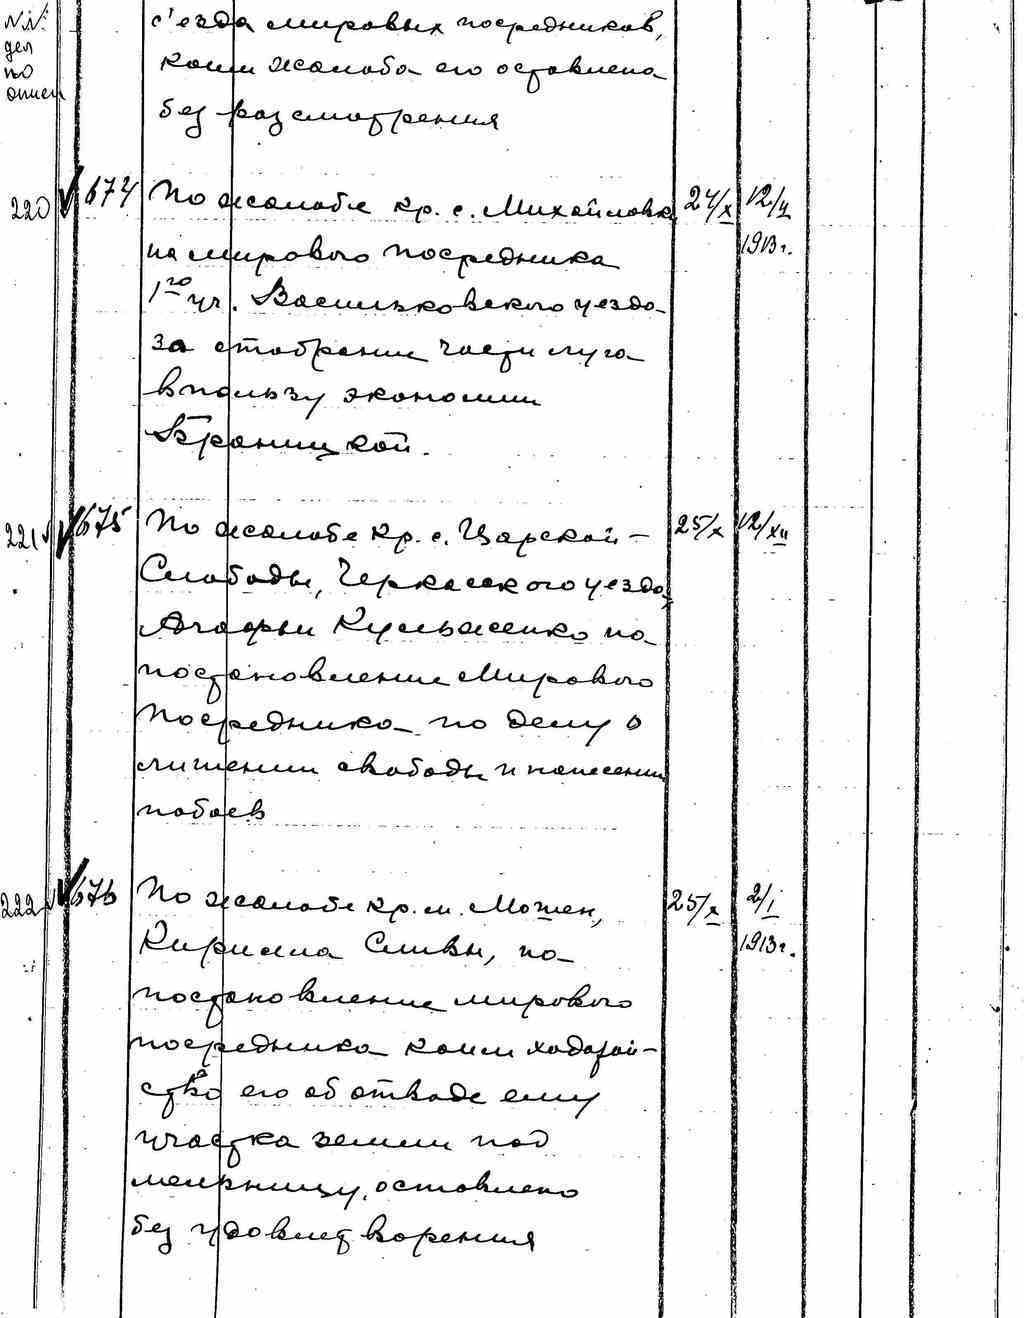 N.N.
дел
по
описи
с'езда мировых посредников,
коим жалоба его оставлена
без разсмотрения
220 674 По жалобе кр. с. Михайловки 24/X 12/II
на мирового посредника 1913 г.
1го уч. Васильковского уезда
за отобрание части луга
в пользу экономии
Браницкой.
221 675 По жалобе кр. с. Царской- 25/X 12/XII
Слободы, Черкасского уезда,
Агафьи Кульженко на
постановление Мирового
Посредника по делу о
лишении свободы и нанесении
побоев
222 676 По жалобе кр. м. Мошен, 25/X 2/I
Кирилла Сливы, на 1913 г.
постановление мирового
посредника коим ходатай-
ство его об отводе ему
участка земли под
мельницу, оставлено
без удовлетворения